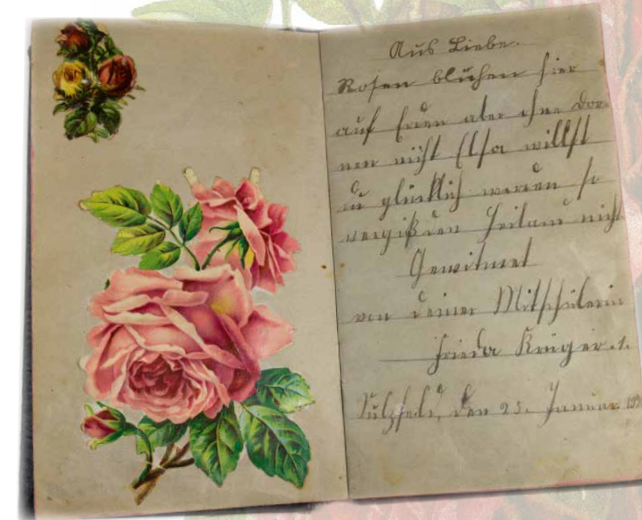 Aus Liebe.
Rosen blühen hier
auf Erden aber ohne Dor-
nen nicht Elsa willst
du glücklich werden so
vergiß den Heiland nicht
Gewitmet
von deiner Mitschülerin
Frieda Krüger.
Sulzfeld, den 25. Januar